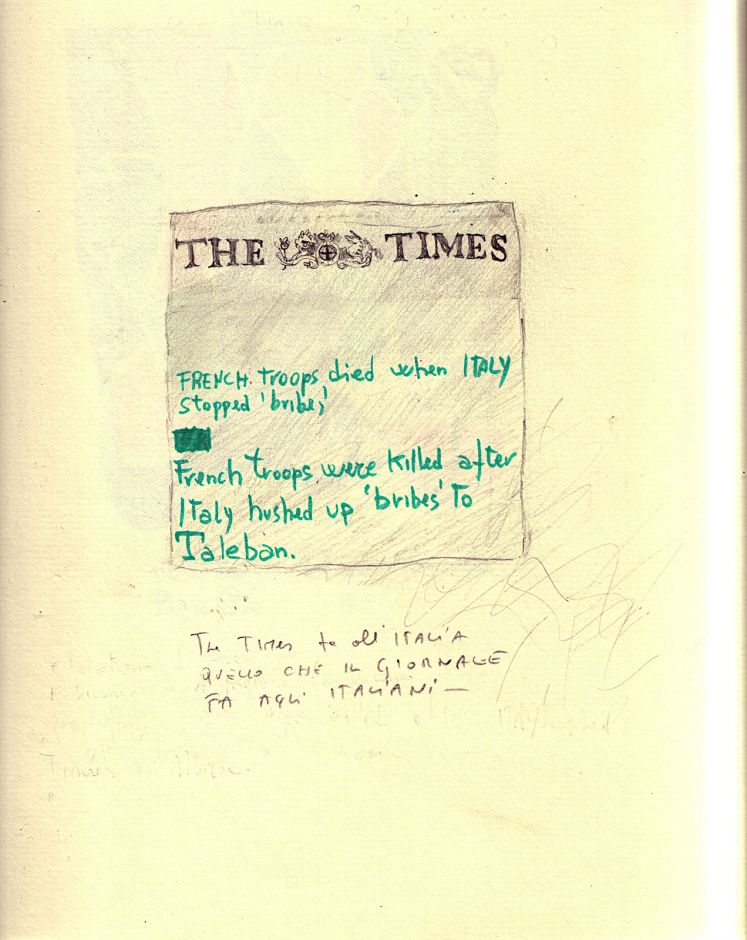 THE TIMES
FRENCH troops died when ITALY
stopped 'bribes'
French troops were killed after
ITaly hushed up 'bribes' To
Taleban.
The Times fa all'ITALIA
QUELLO CHE IL GIORNALE
FA AGLI ITALIANI —